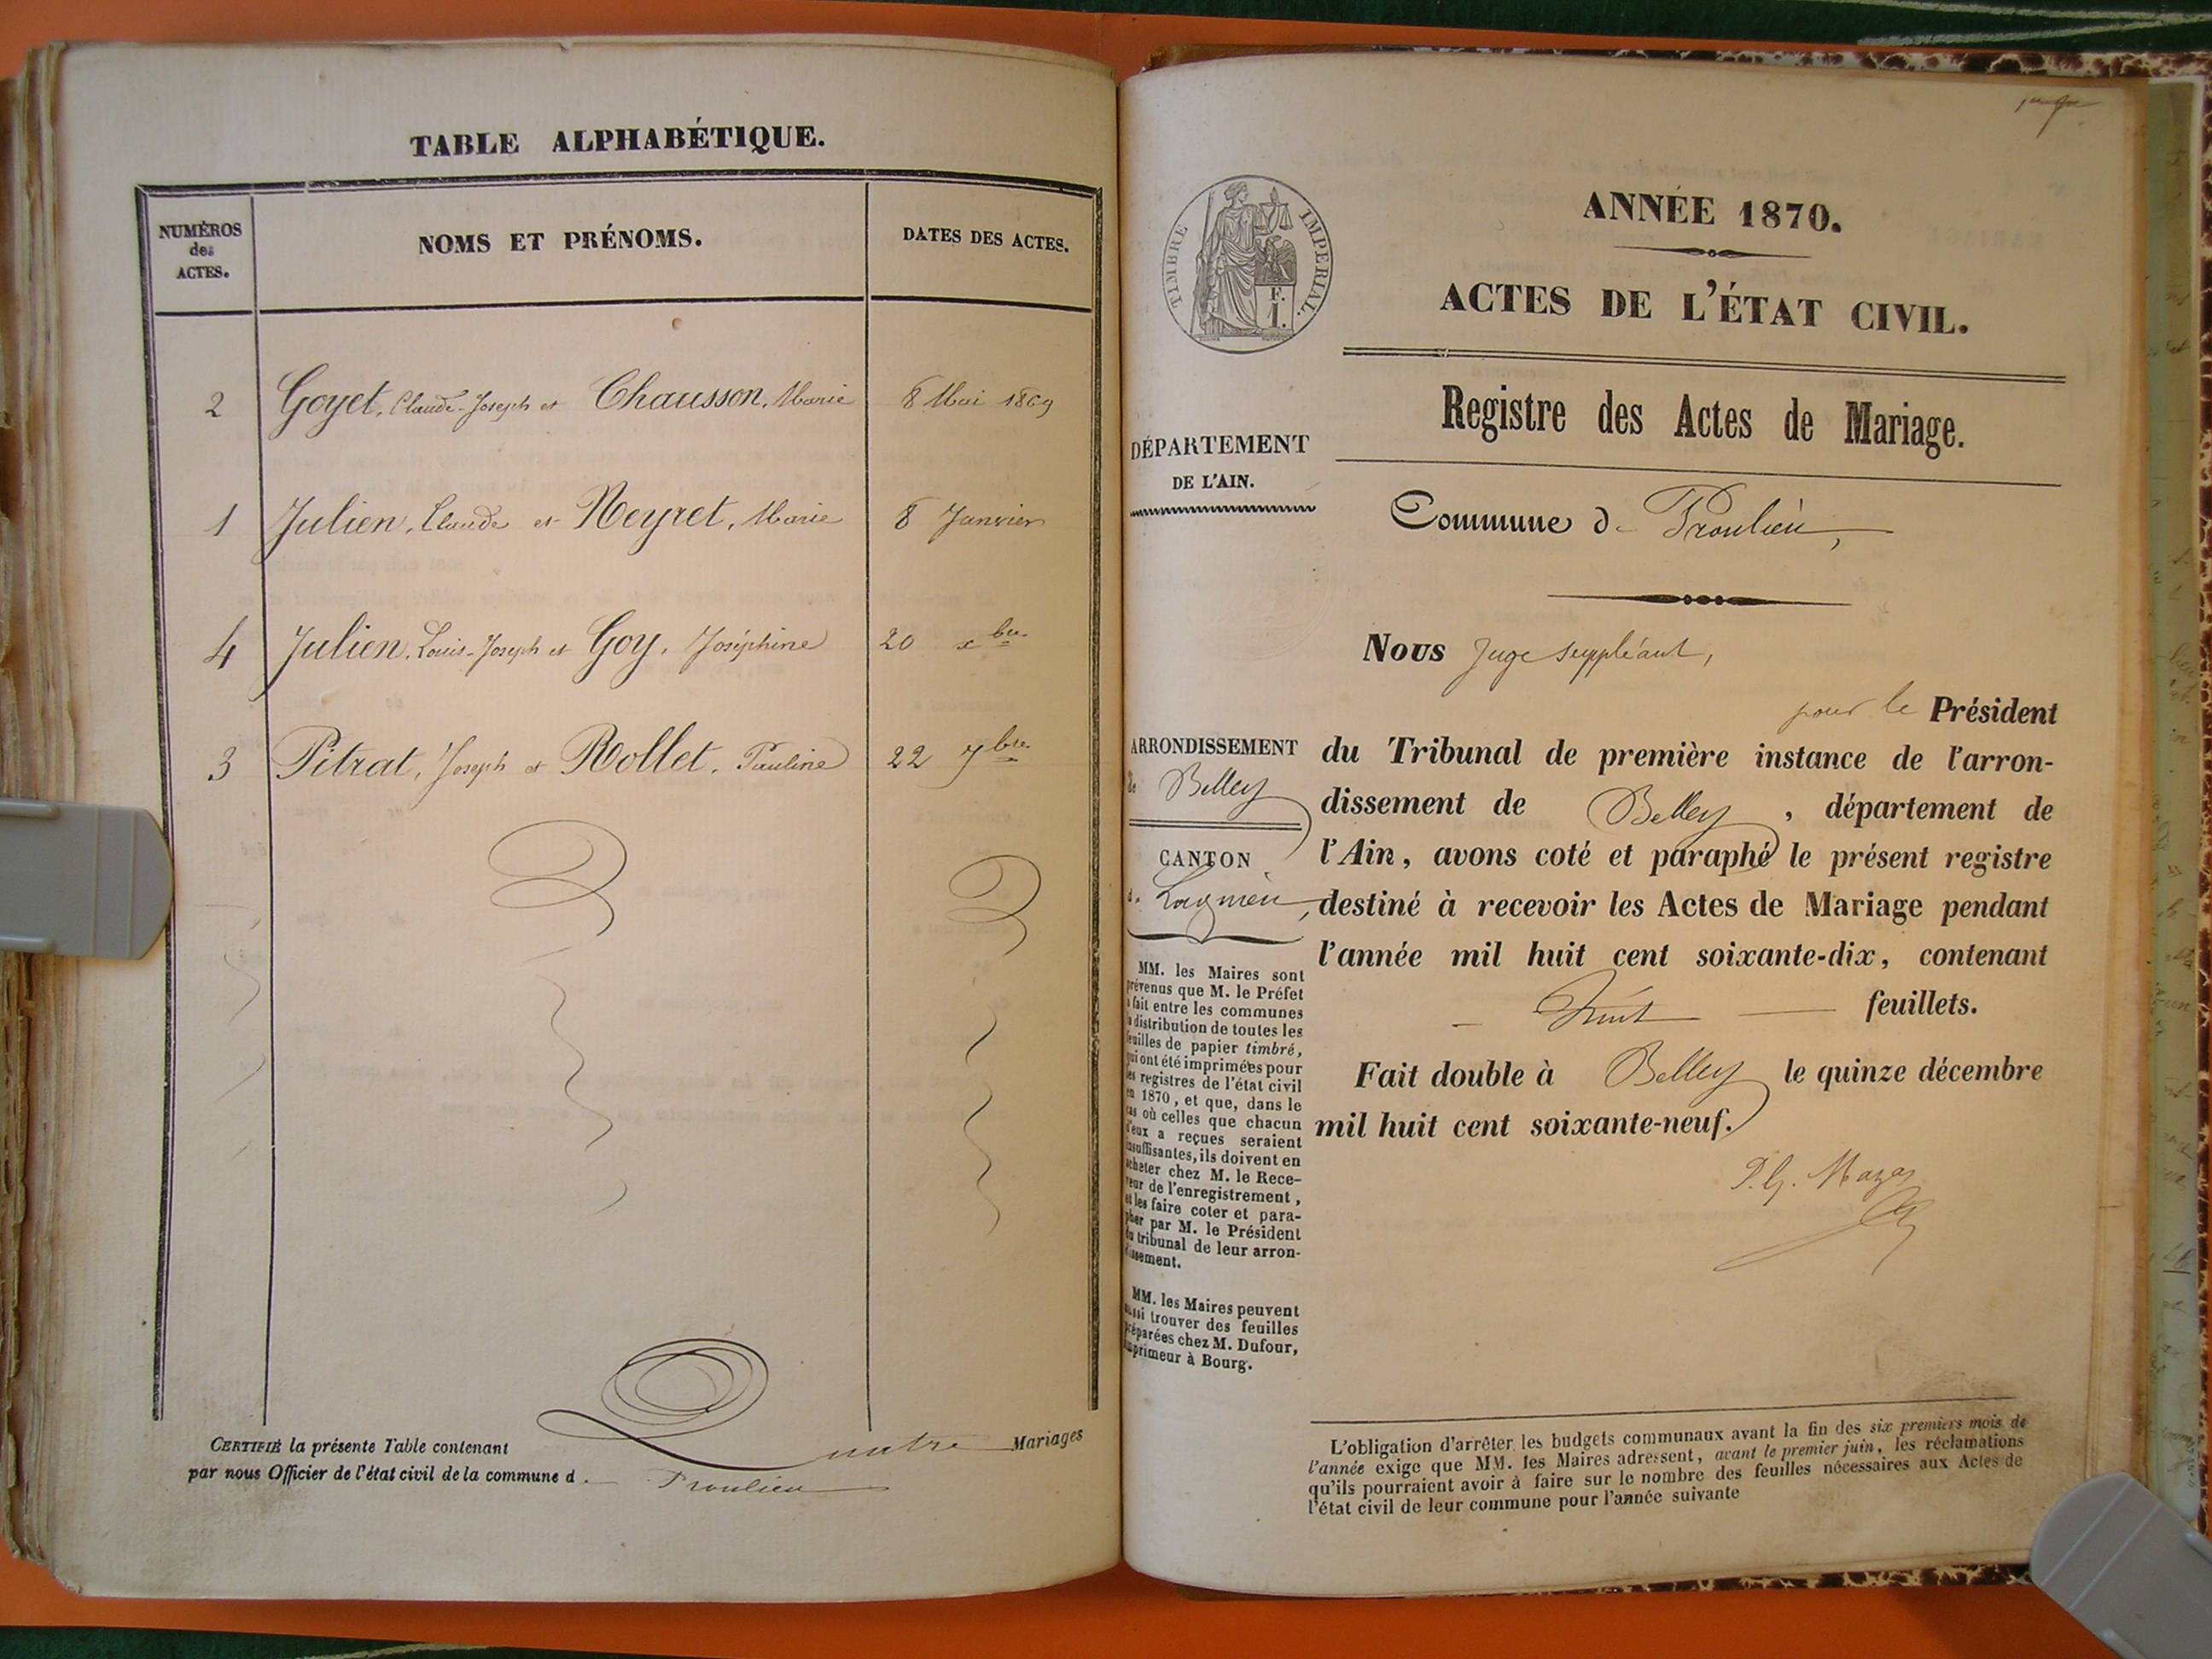 TABLE ALPHABÉTIQUE.
NUMÉROS des ACTES.
NOMS ET PRÉNOMS.
DATES DES ACTES.
2 Goyet, Claude-Joseph et Chausson, Marie 8 Mai 1869
1 Julien, Claude et Neyret, Marie 8 Janvier
4 Julien, Louis-Joseph et Goy, Joséphine 20 xbre
3 Pitrat, Joseph et Rollet, Pauline 22 7bre
CERTIFIÉ la présente Table contenant quatre Mariages
par nous Officier de l'état civil de la commune d. Proulieu
TIMBRE IMPERIAL.
F.
1.
ANNÉE 1870.
ACTES DE L'ÉTAT CIVIL.
Registre des Actes de Mariage.
DÉPARTEMENT
DE L'AIN.
Commune de Proulieu,
Nous Juge suppléant,
pour le Président
ARRONDISSEMENT
de Belley
CANTON
d. Lagnieu,
du Tribunal de première instance de l'arron-
dissement de Belley, département de
l'Ain, avons coté et paraphé le présent registre
destiné à recevoir les Actes de Mariage pendant
l'année mil huit cent soixante-dix, contenant
huit feuillets.
Fait double à Belley le quinze décembre
mil huit cent soixante-neuf.
MM. les Maires sont
prévenus que M. le Préfet
a fait entre les communes
la distribution de toutes les
feuilles de papier timbré,
qui ont été imprimées pour
les registres de l'état civil
en 1870, et que, dans le
cas où celles que chacun
d'eux a reçues seraient
insuffisantes, ils doivent en
acheter chez M. le Rece-
veur de l'enregistrement,
et les faire coter et para-
pher par M. le Président
du tribunal de leur arron-
dissement.
MM. les Maires peuvent
aussi trouver des feuilles
préparées chez M. Dufour,
imprimeur à Bourg.
L'obligation d'arrêter les budgets communaux avant la fin des six premiers mois de
l'année exige que MM. les Maires adressent, avant le premier juin, les réclamations
qu'ils pourraient avoir à faire sur le nombre des feuilles nécessaires aux Actes de
l'état civil de leur commune pour l'année suivante